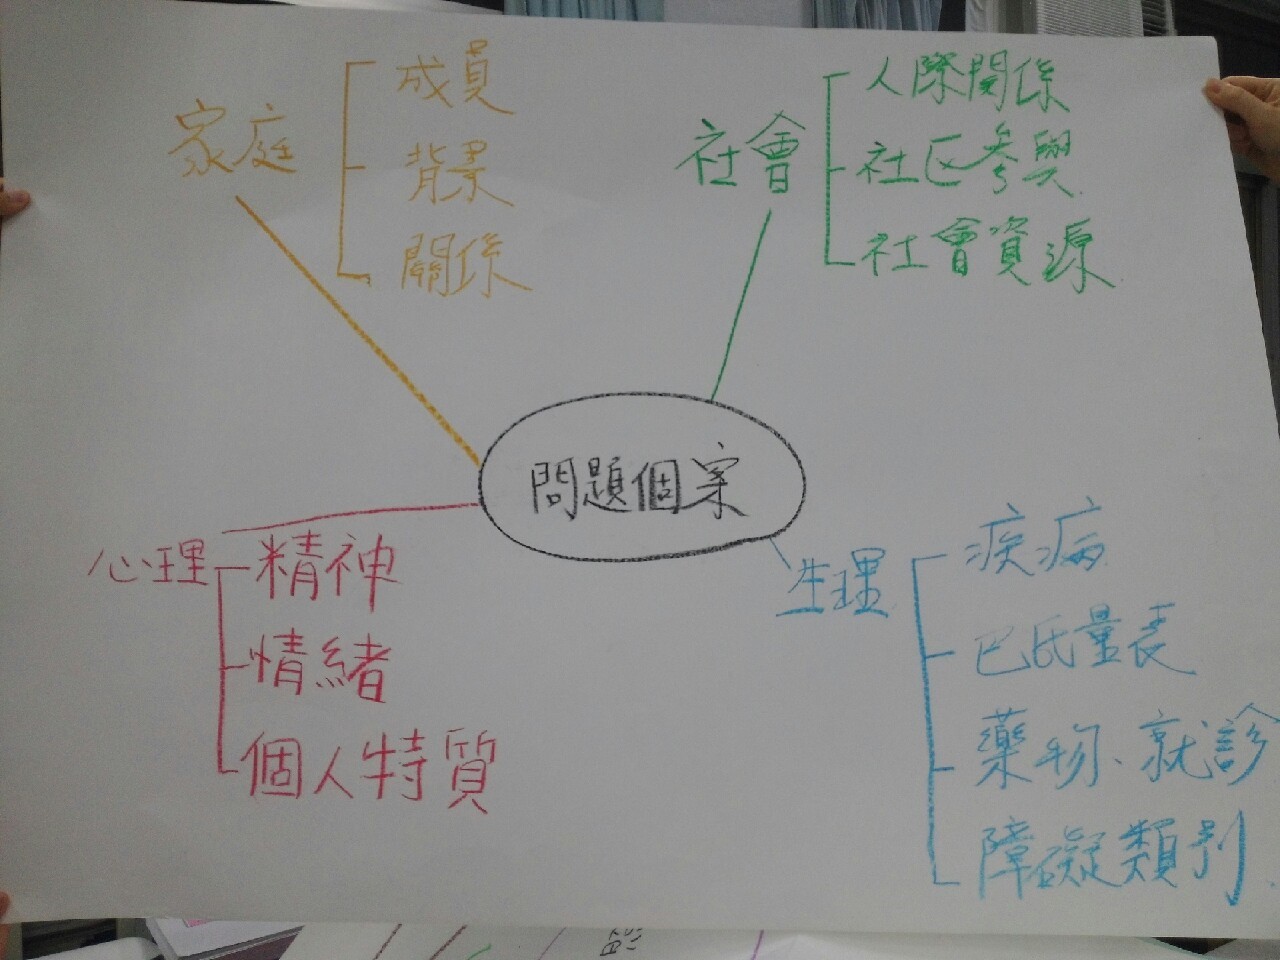 家庭
成員
背景
關係
社會
人際關係
社區參與
社會資源
問題個案
心理
精神
情緒
個人特質
生理
疾病
巴氏量表
藥物、就診
障礙類別